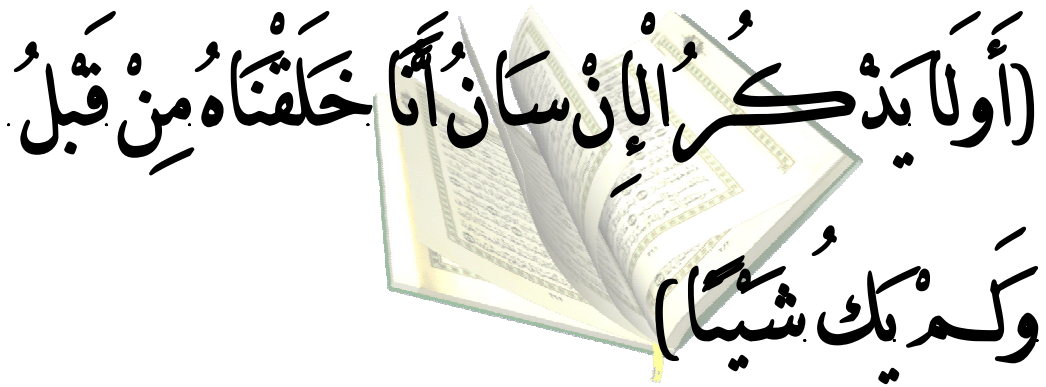 (أَوَلَا يَذْكُرُ الْإِنْسَانُ أَنَّا خَلَقْنَاهُ مِنْ قَبْلُ
وَلَمْ يَكُ شَيْئًا)